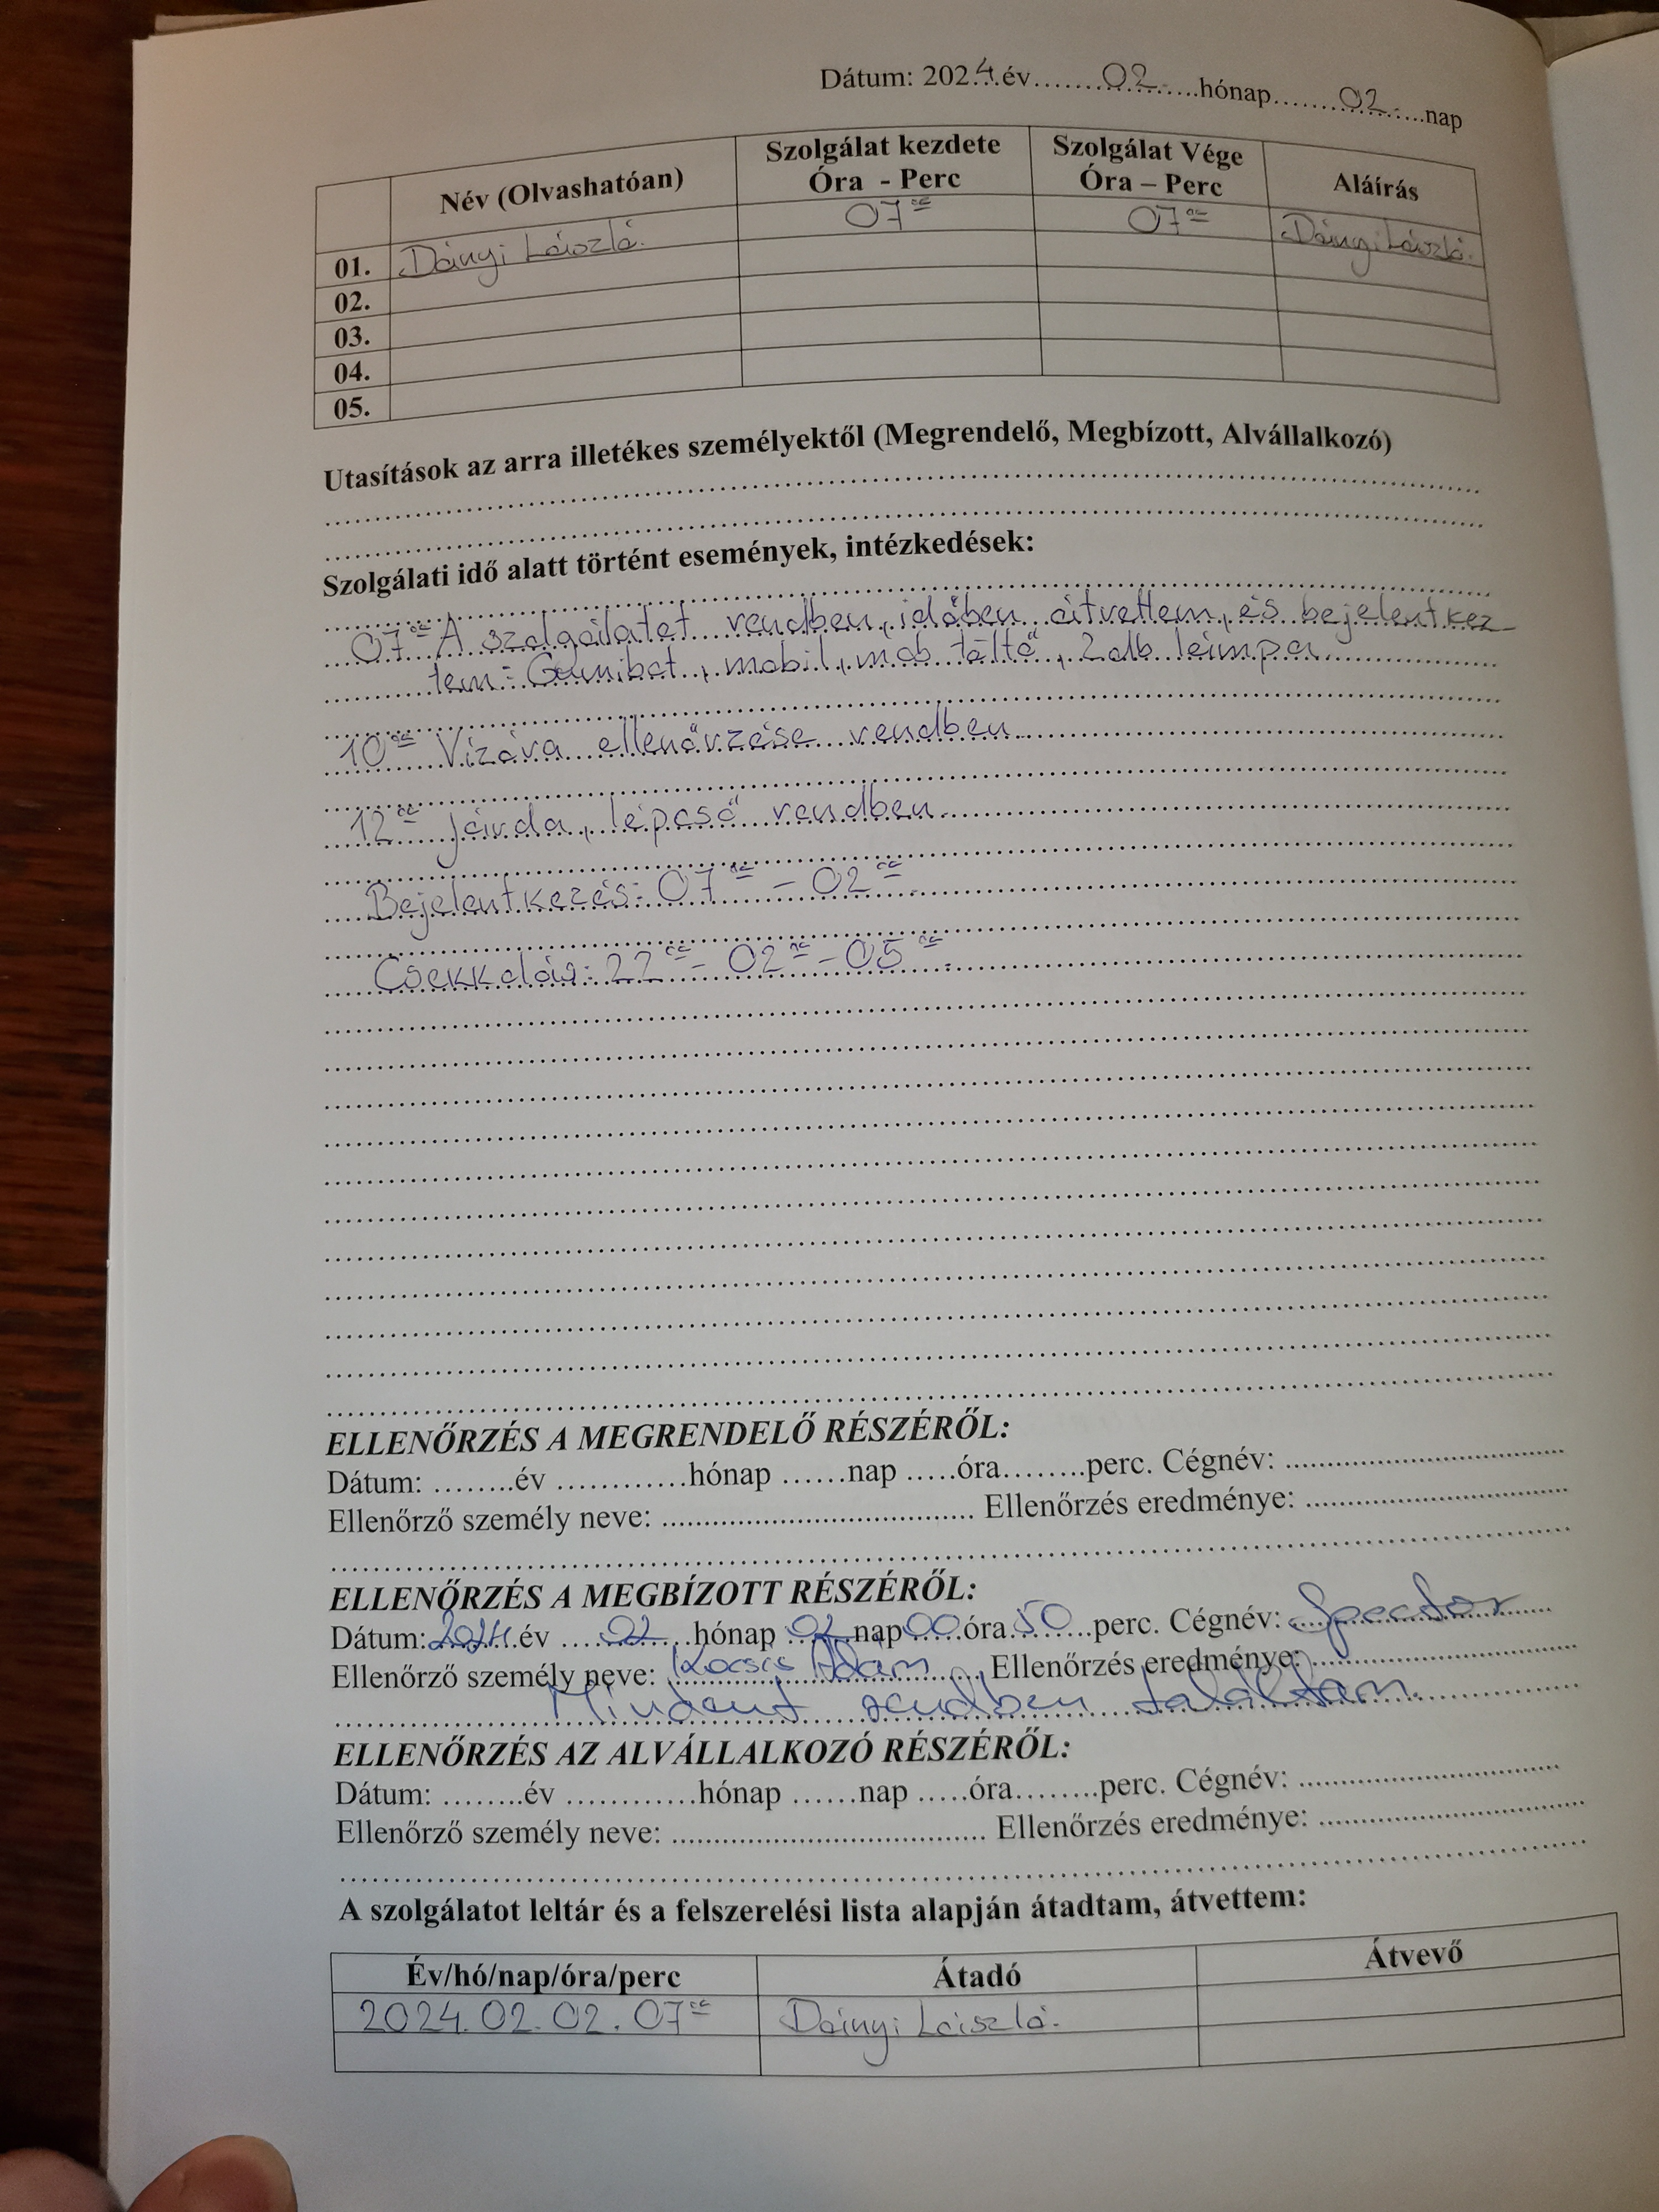 Dátum: 2024.év........02........hónap........02........nap
Név (Olvashatóan) Szolgálat kezdete Óra - Perc Szolgálat Vége Óra – Perc Aláírás
01. Dányi László. 07°° 07°° Dányi László.
02.
03.
04.
05.
Utasítások az arra illetékes személyektől (Megrendelő, Megbízott, Alvállalkozó)
Szolgálati idő alatt történt események, intézkedések:
07°° A szolgálatot rendben, időben átvettem, és bejelentkez-
tem: Gumibot, mobil, mob töltő, 2db lámpa.
10°° Vízóra ellenőrzése rendben.
12°° Járda, lépcső rendben.
Bejelentkezés: 07°° - 02°°.
Csekkolás: 22°° - 02°° - 05°°.
ELLENŐRZÉS A MEGRENDELŐ RÉSZÉRŐL:
Dátum: ........év ............hónap ......nap .....óra........perc. Cégnév: ..............................
Ellenőrző személy neve: .................................. Ellenőrzés eredménye: ..............................
ELLENŐRZÉS A MEGBÍZOTT RÉSZÉRŐL:
Dátum: 2024.év .....02....hónap 02.nap 00 óra 50 perc. Cégnév: Spector
Ellenőrző személy neve: Kocsis Ádám Ellenőrzés eredménye: ..............................
Mindent rendben találtam.
ELLENŐRZÉS AZ ALVÁLLALKOZÓ RÉSZÉRŐL:
Dátum: ........év ............hónap ......nap .....óra........perc. Cégnév: ..............................
Ellenőrző személy neve: .................................. Ellenőrzés eredménye: ..............................
A szolgálatot leltár és a felszerelési lista alapján átadtam, átvettem:
Év/hó/nap/óra/perc Átadó Átvevő
2024.02.02.07°° Dányi László.